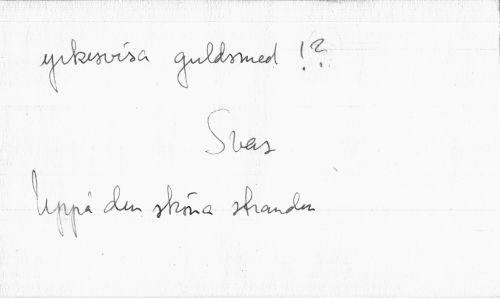 yrkesvisa guldsmed !?
Svea
Uppå den sköna stranden